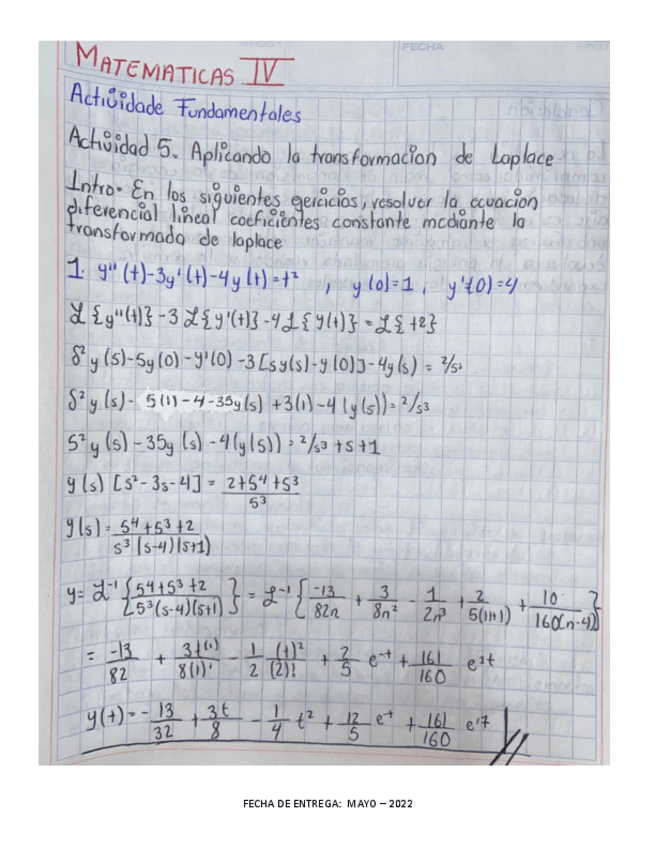 FECHA
MATEMATICAS IV
Actividade Fundamentales
Actividad 5. Aplicando la transformacion de Laplace
Intro. En los siguientes ejercicios, resolver la ecuacion
diferencial lineal coeficientes constante mediante la
transformada de laplace
1. y''(t)-3y'(t)-4y(t)=t² , y(0)=1, y'(0)=4
ℒ{y''(t)} - 3ℒ{y'(t)} - 4ℒ{y(t)} = ℒ{t2}
s²y(s)-5y(0)-y'(0)-3[sy(s)-y(0)]-4y(s) = 2/s³
s²y(s)- 5(1)-4-35y(s) +3(1)-4(y(s))=2/s3
5²y(s)-35y(s)-4(y(s))=2/s3+s+1
y(s) [s²-3s-4] = 2+5⁴+5³ / 5³
y(s) = 5⁴+5³+2 / s³(s-4)(s+1)
y= ℒ⁻¹{54+5³+2 / 5³(s-4)(s+1)} = ℒ⁻¹{-13/82n + 3/8n² - 1/2n³ + 2/5(n+1) + 10/160(n-4)}
= -13/82 + 3t(1)/8(1)! - 1/2 (t)²/(2)! + 2/5 e⁻ᵗ + 161/160 e¹ᵗ
y(t)=-13/32 + 3t/8 - 1/4 t² + 12/5 e⁻ᵗ + 161/160 e¹⁷
FECHA DE ENTREGA: MAYO – 2022